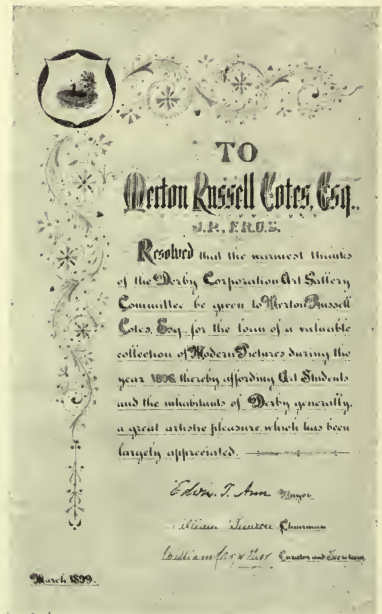 TO
Merton Russell Cotes, Esq.,
J.P., F.R.G.S.
Resolved that the warmest thanks
of the Derby Corporation Art Gallery
Committee be given to Merton Russell
Cotes, Esq., for the loan of a valuable
collection of Modern Pictures during the
year 1896 thereby affording Art Students
and the inhabitants of Derby generally,
a great artistic pleasure, which has been
largely appreciated.
Edwin T. Ann Mayor
William Chairman
William Curator and Secretary
March 1899.